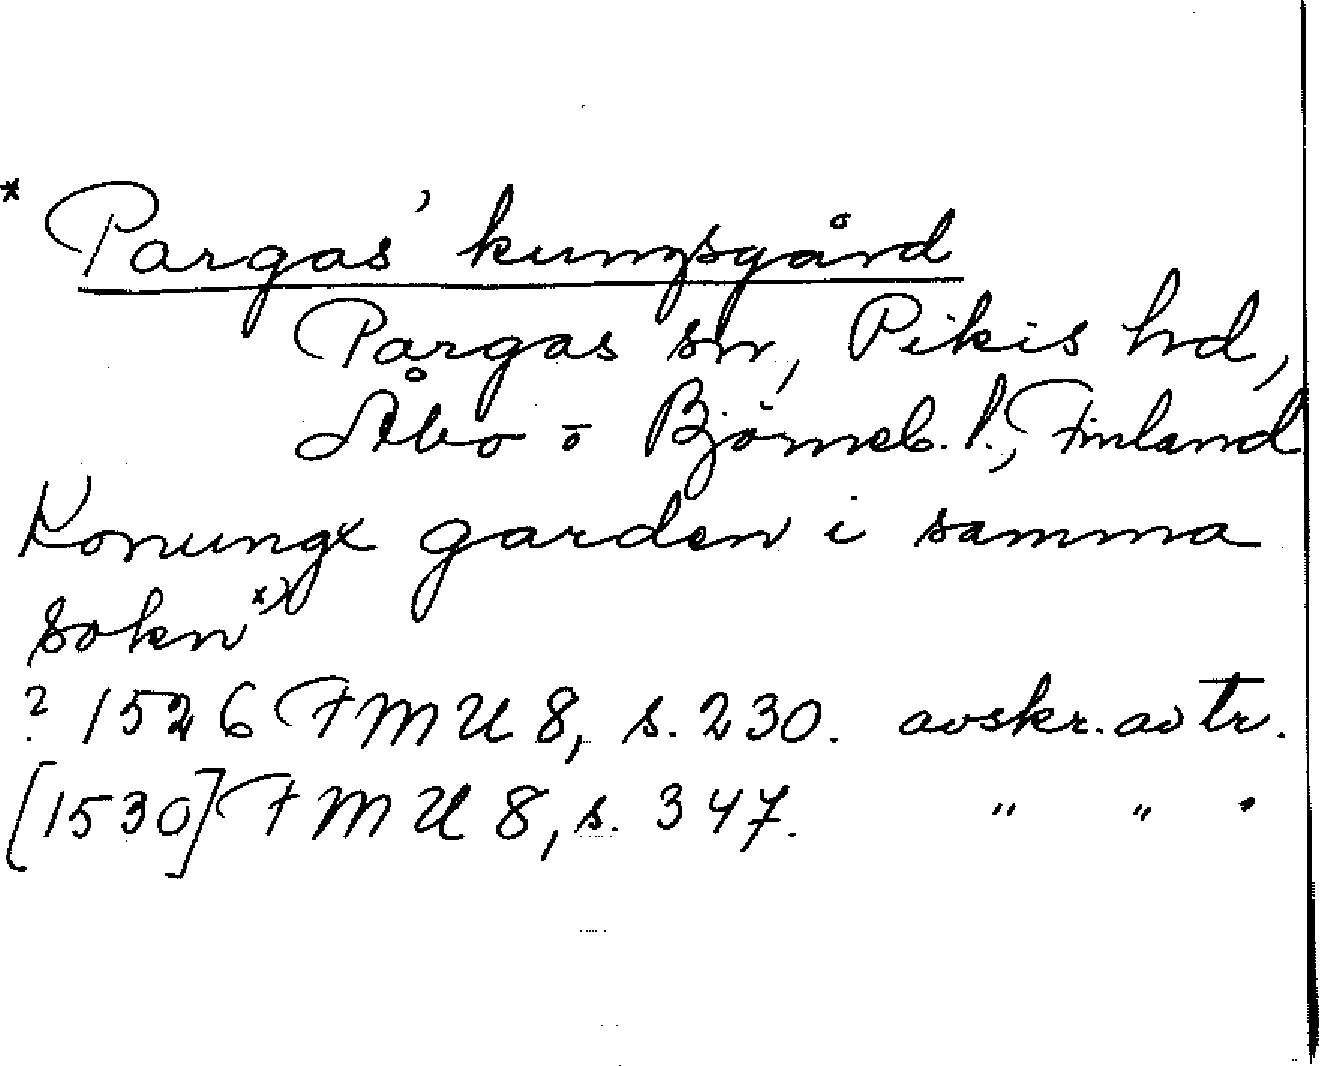 * Pargas' kungsgård
Pargas sn, Pikis hd,
Åbo o Björneb. l., Finland
Konungx garden i samma
sokn x)
? 1526 FMU 8, s. 230. avskr. av tr.
[1530] FMU 8, s. 347. " " .